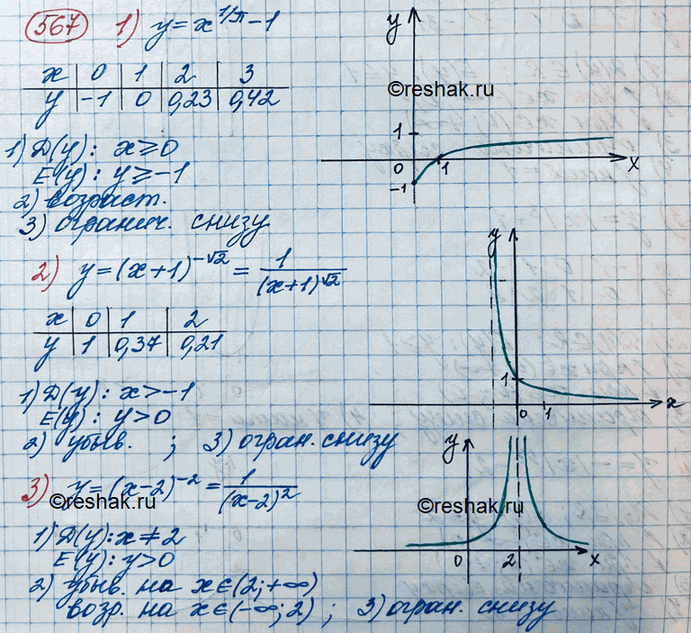 567 1) y = x^(1/π) - 1
x | 0 | 1 | 2 | 3
y | -1 | 0 | 0,23 | 0,42
1) D(y): x ≥ 0
E(y): y ≥ -1
2) возраст.
3) огранич. снизу
y
©reshak.ru
1
0
1
x
-1
2) y = (x+1)^(-√2) = 1/(x+1)^√2
x | 0 | 1 | 2
y | 1 | 0,37 | 0,21
1) D(y): x > -1
E(y): y > 0
2) убыв. ; 3) огран. снизу
y
1
0
1
x
3) y = (x-2)^(-2) = 1/(x-2)^2
©reshak.ru
1) D(y): x ≠ 2
E(y): y > 0
2) убыв. на x ∈ (2; +∞)
возр. на x ∈ (-∞; 2) ; 3) огран. снизу
y
©reshak.ru
0
2
x